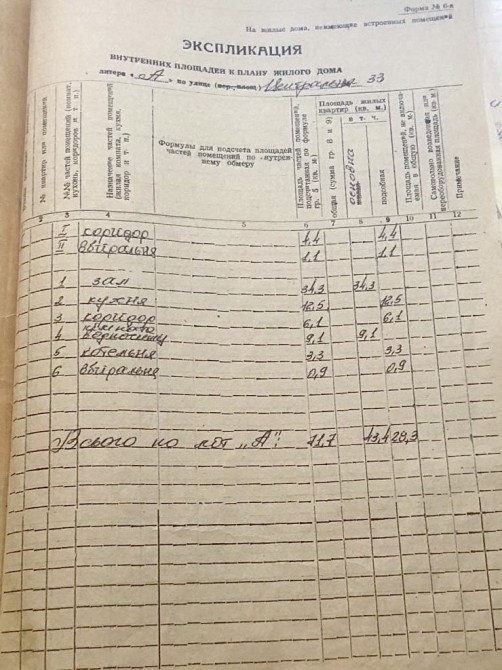 Форма № 6-я
На жилые дома, неимеющие встроенных помещений
ЭКСПЛИКАЦИЯ
ВНУТРЕННИХ ПЛОЩАДЕЙ К ПЛАНУ ЖИЛОГО ДОМА
литера «А» по улице (пер., площ) Центральна 33
№ квартир или помещения
№№ частей помещений (комнат, кухонь, коридоров и т. п.)
Назначение частей помещений (жилая комната, кухня, коридор и т. п.)
Формулы для подсчета площадей частей помещений по внутреннему обмеру
Площадь частей помещения, подсчитанных по формуле гр. 5 (кв. м)
Площадь жилых квартир (кв. м.)
общая (сумма гр. 8 и 9)
в т. ч.
основна
подсобная
Площадь помещений, не включаемая в общую (кв. м)
Самовольно возведенная или переоборудованная площадь (кв. м)
Примечание
2 3 4 5 6 7 8 9 10 11 12
I коридор 4,4 4,4
II вбиральня 1,1 1,1
1 зал 34,3 34,3
2 кухня 12,5 12,5
3 коридор 6,1 6,1
4 кімната відпочинку 9,1 9,1
5 котельня 3,3 3,3
6 вбиральня 0,9 0,9
Всього по літ „А": 71,7 43,4 28,3